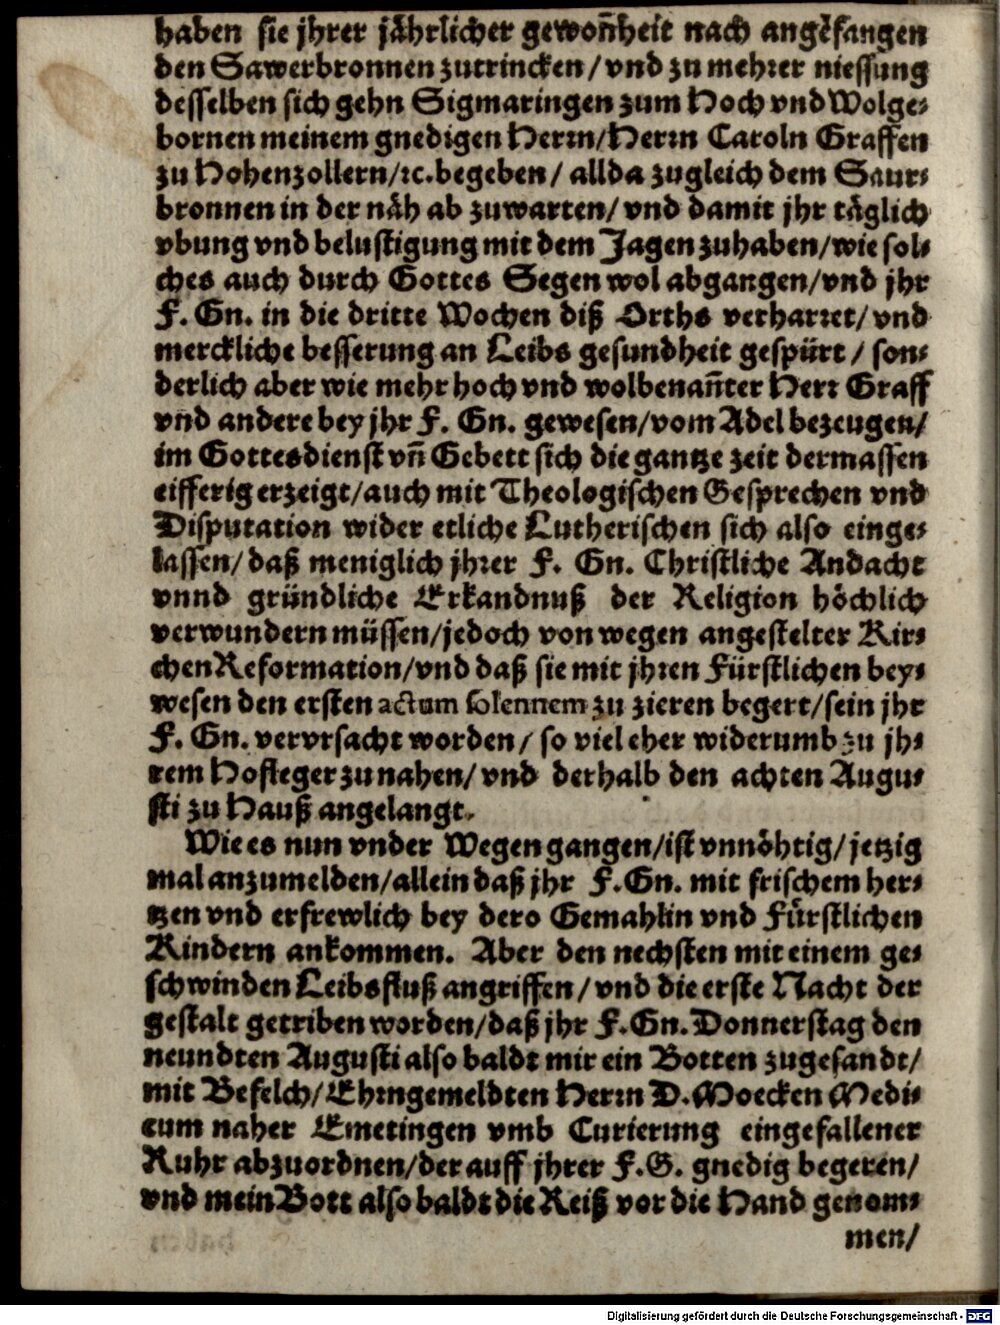 haben sie jhrer jährlicher gewoñheit nach angefangen
den Sawerbronnen zutrincken/vnd zu mehrer niessung
desselben sich gehn Sigmaringen zum Hoch vnd Wolge-
bornen meinem gnedigen Herrn/Herrn Caroln Graffen
zu Hohenzollern/ꝛc.begeben/ allda zugleich dem Saur-
bronnen in der näh ab zuwarten/ vnd damit jhr täglich
vbung vnd belustigung mit dem Jagen zuhaben/wie sol-
ches auch durch Gottes Segen wol abgangen/vnd jhr
F. Gn. in die dritte Wochen diß Orths verharret/ vnd
merckliche besserung an Leibs gesundheit gespürt / son-
derlich aber wie mehr hoch vnd wolbenañter Herr Graff
vnd andere bey jhr F. Gn. gewesen/vom Adel bezeugen/
im Gottesdienst vñ Gebett sich die gantze zeit dermassen
eifferig erzeigt/auch mit Theologischen Gesprechen vnd
Disputation wider etliche Lutherischen sich also einge-
lassen/ daß meniglich jhrer F. Gn. Christliche Andacht
vnnd gründliche Erkandnuß der Religion höchlich
verwundern müssen/jedoch von wegen angestelter Kir-
chen Reformation/vnd daß sie mit jhren Fürstlichen bey-
wesen den ersten actum solennem zu zieren begert/sein jhr
F. Gn. vervrsacht worden/ so viel eher widerumb zu jh-
rem Hofleger zu nahen/ vnd derhalb den achten Augu-
sti zu Hauß angelangt.
Wie es nun vnder Wegen gangen/ist vnnöhtig/jetzig
mal anzumelden/allein daß jhr F.Gn. mit frischem her-
tzen vnd erfrewlich bey dero Gemahlin vnd Fürstlichen
Kindern ankommen. Aber den nechsten mit einem ge-
schwinden Leibsfluß angriffen/ vnd die erste Nacht der
gestalt getriben worden/daß jhr F.Gn. Donnerstag den
neundten Augusti also baldt mir ein Botten zugesandt/
mit Befelch/Ehrngemeldten Herrn D. Moecken Medi-
cum naher Emetingen vmb Curierung eingefallener
Ruhr abzuordnen/der auff jhrer F.G. gnedig begeren/
vnd mein Bott also baldt die Reiß vor die Hand genom-
men/
Digitalisierung gefördert durch die Deutsche Forschungsgemeinschaft - DFG